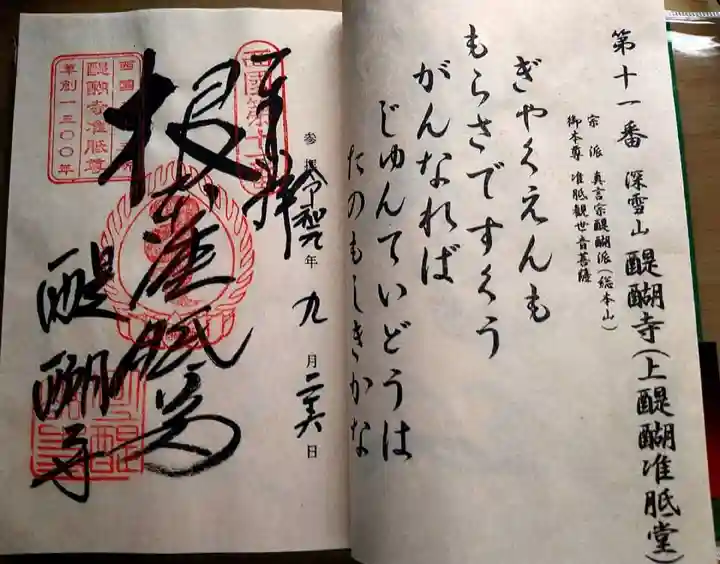 第十一番 深雪山 醍醐寺(上醍醐准胝堂)
宗派 真言宗醍醐派(総本山)
御本尊 准胝観世音菩薩
ぎやくえんも
もらさですくう
がんなれば
じゆんていどうは
たのもしきかな
西國第十一番
奉拝
参拝 令和元年九月二十六日
根本准胝尊
醍醐寺
西国
醍醐寺准胝尊
草創一三〇〇年